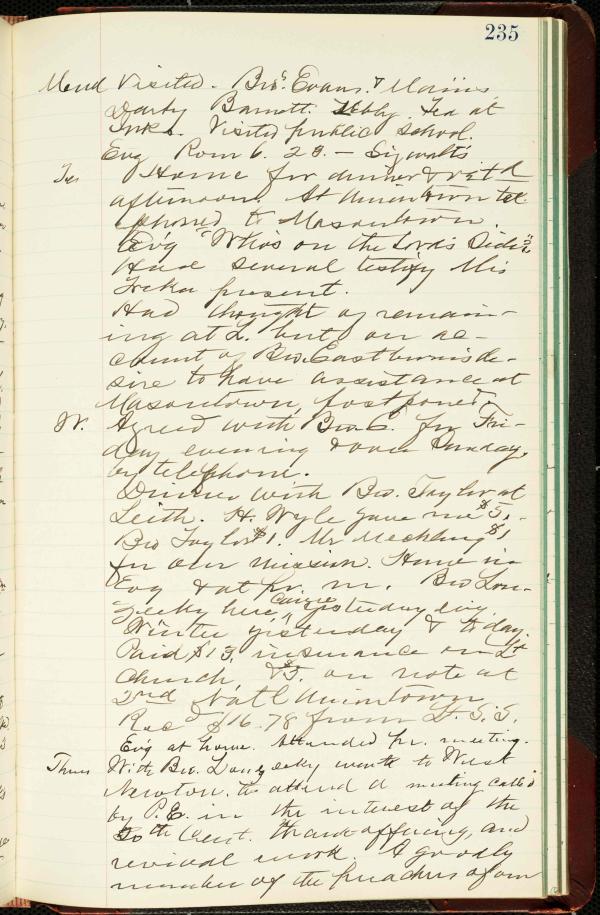 235
Mond Visited. Bros. Evans & Morris,
Darby Barnett. Tea at
Inks. Visited public school.
Evg Rom 6. 23. - Sigwalt's
Tues Home for dinner & rest
afternoon. At Uniontown tel-
ephoned to Masontown.
Ev'g "Who's on the Lord's Side"?
Had several testify Mis
present.
Had thought of remain-
ing at L. but on ac-
count of Bro. Eastburn's de-
sire to have assistance at
Masontown, postponed.
W. Agreed with Bro. E. for Fri-
day evening & over Sunday,
by telephone.
Dinner with Bro. Taylor at
Leith. H. Wyle gave me $5.
Bro Taylor $1. Mr Mechling $1
for our mission. Home in
Evg & at pr. m. Bro Lon-
gecky here, came yesterday evg.
Winter yesterday & today.
Paid $13, insurance on Lt
Church, & $5. on note at
2nd Nat'l Uniontown
Recd $16.78 from Lt. S. S.
Ev'g at home. Attended pr. meeting.
Thurs With Bro. Longecky went to West
Newton to attend a meeting called
by P.E. in the interest of the
20th Cent. Thank-offering, and
revival work. A goodly
number of the preachers of our